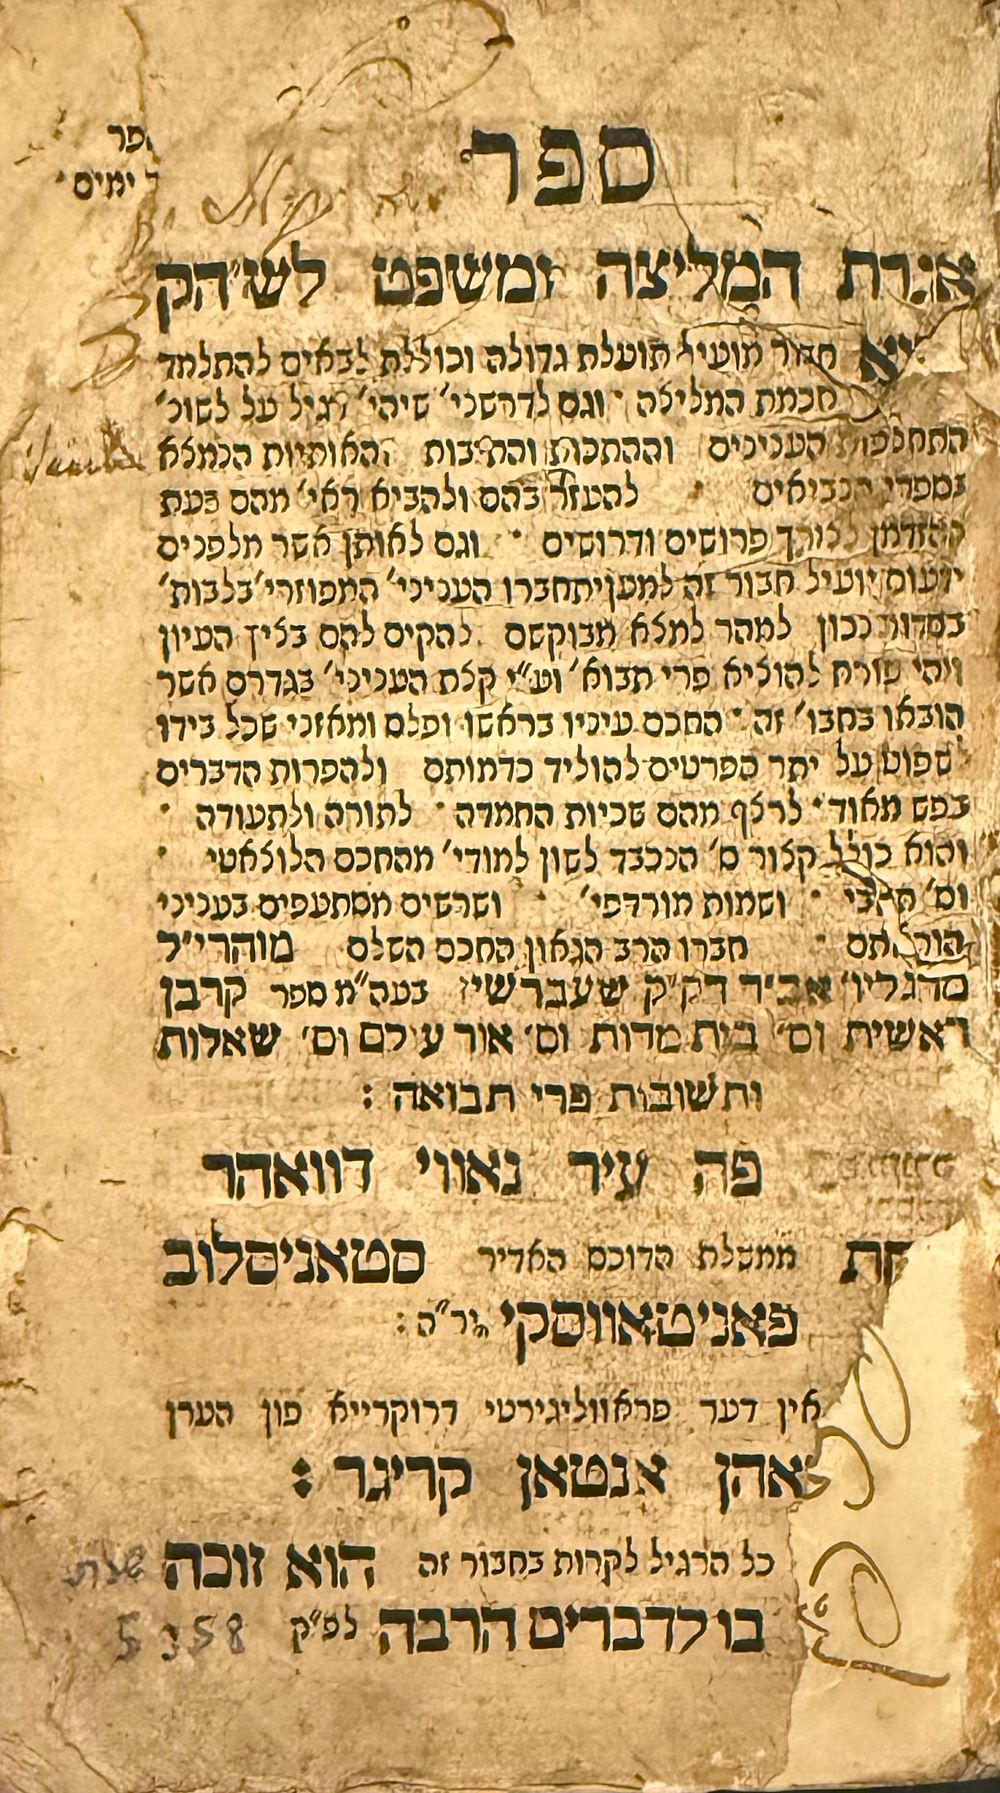 ספר
אגרת המליצה ומשפט לש״הק
חבור מועיל תועלת גדולה וכוללת לבאים להתלמד
חכמת המליצה וגם לדרשני׳ שיהי׳ רגיל על לשונ׳
התחלפות הענינים וההתכות והתיבות והאותיות הנמצא
בספרי הנביאים להעזר בהם ולהביא ראי׳ מהם בעת
ההזדמן לצורך פרושים ודרושים וגם לאותן אשר מלפנים
ידעום יועיל חבור זה למען יתחברו העניני׳ המפוזרי׳ בלבות׳
בסדור נכון למהר למצא מבוקשם להקים להם בציץ העיון
ויהי פורח להוציא פרי תבוא׳ וע״י קצת העניני׳ בגדרם אשר
הובאו בחבו׳ זה החכם עיניו בראשו ופלם ומאזני שכל בידו
לשפוט על יתר הפרטים להוליד כדמותם ולהפרות הדברים
בפש מאוד לרצף מהם שכיות החמדה לתורה ולתעודה
והוא כולל קצור ס׳ הנכבד לשון למודי׳ מהחכם הלוצאטי
וס׳ ושמות נורדפי׳ ושרשים מסתעפים בעניני
הוראתם חברו הרב הגאון החכם השלם מוהרי״ל
מרגליו׳ אב״ד דק״ק שעברשין בעה״מ ספר קרבן
ראשית וס׳ בית מדות וס׳ אור עולם וס׳ שאלות
ותשובות פרי תבואה :
פה עיר נאווי דוואהר
תחת ממשלת הדוכס האדיר סטאניסלוב
פאניטאווסקי יר״ה :
אין דער פראווליגירטי דרוקרייא פון הערן
יאהן אנטאן קריגר :
כל הרגיל לקרות בחבור זה הוא זוכה
בו לדברים הרבה לפ״ק